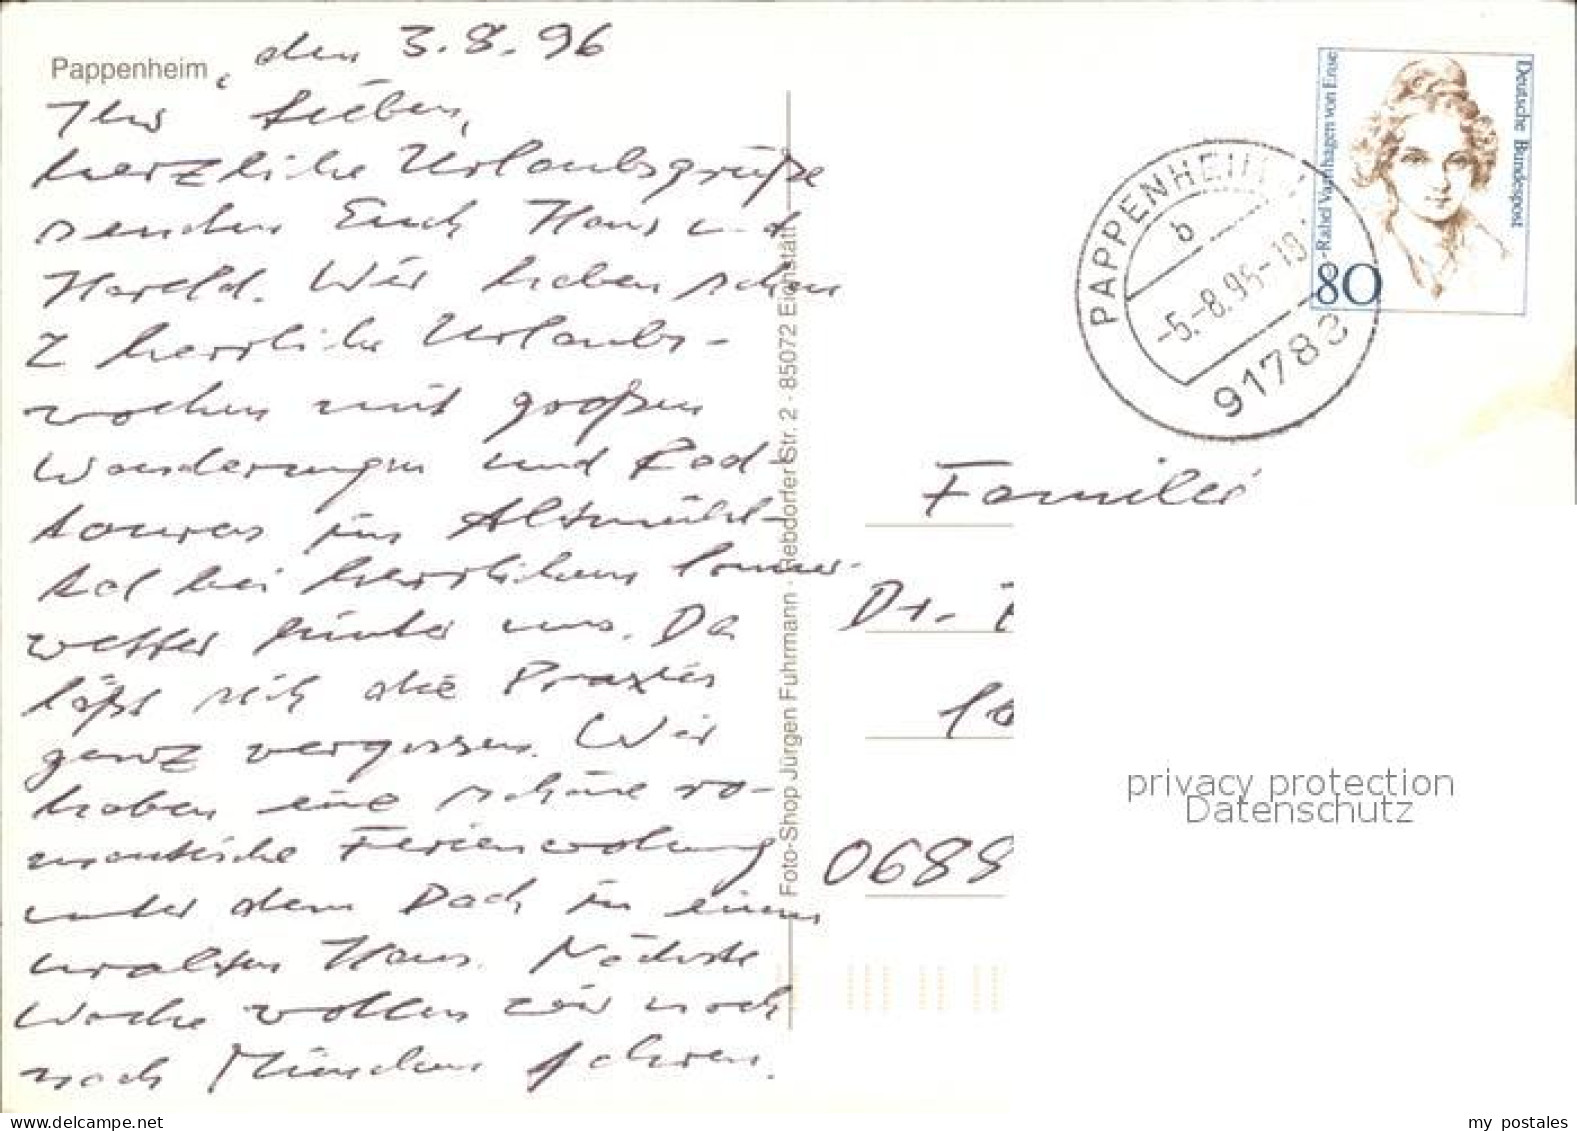 Pappenheim, den 3.8.96
Ihr Lieben,
herzliche Urlaubsgrüße
senden Euch Hans und
Harald. Wir haben schon
2 herrliche Urlaubs-
wochen mit großen
Wanderungen und Rad-
touren im Altmühl-
tal bei herrlichem Sommer-
wetter hinter uns. Da
läßt sich die Praxis
ganz vergessen. Wir
haben eine schöne ro-
mantische Ferienwohnung
unter dem Dach in einem
uralten Haus. Nächste
Woche wollen wir noch
nach München fahren.
Foto-Shop Jürgen Fuhrmann - Rebdorfer Str. 2 - 85072 Eichstätt
Deutsche Bundespost
Rahel Varnhagen von Ense
80
PAPPENHEIM
b
-5.-8.96-
91783
Familie
Dr.
0689
privacy protection
Datenschutz
www.delcampe.net
my postales